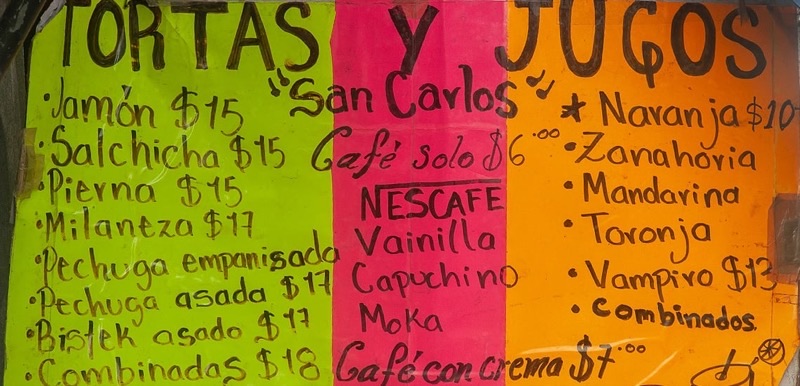 TORTAS Y JUGOS
"San Carlos"
·Jamón $15
·Salchicha $15
·Pierna $15
·Milaneza $17
·Pechuga empanisada
·Pechuga asada $17
·Bistek asado $17
·Combinadas $18
Café solo $6.00
NESCAFE
Vainilla
Capuchino
Moka
Café con crema $7.00
* Naranja $10
·Zanahoria
·Mandarina
·Toronja
·Vampiro $13
·Combinados